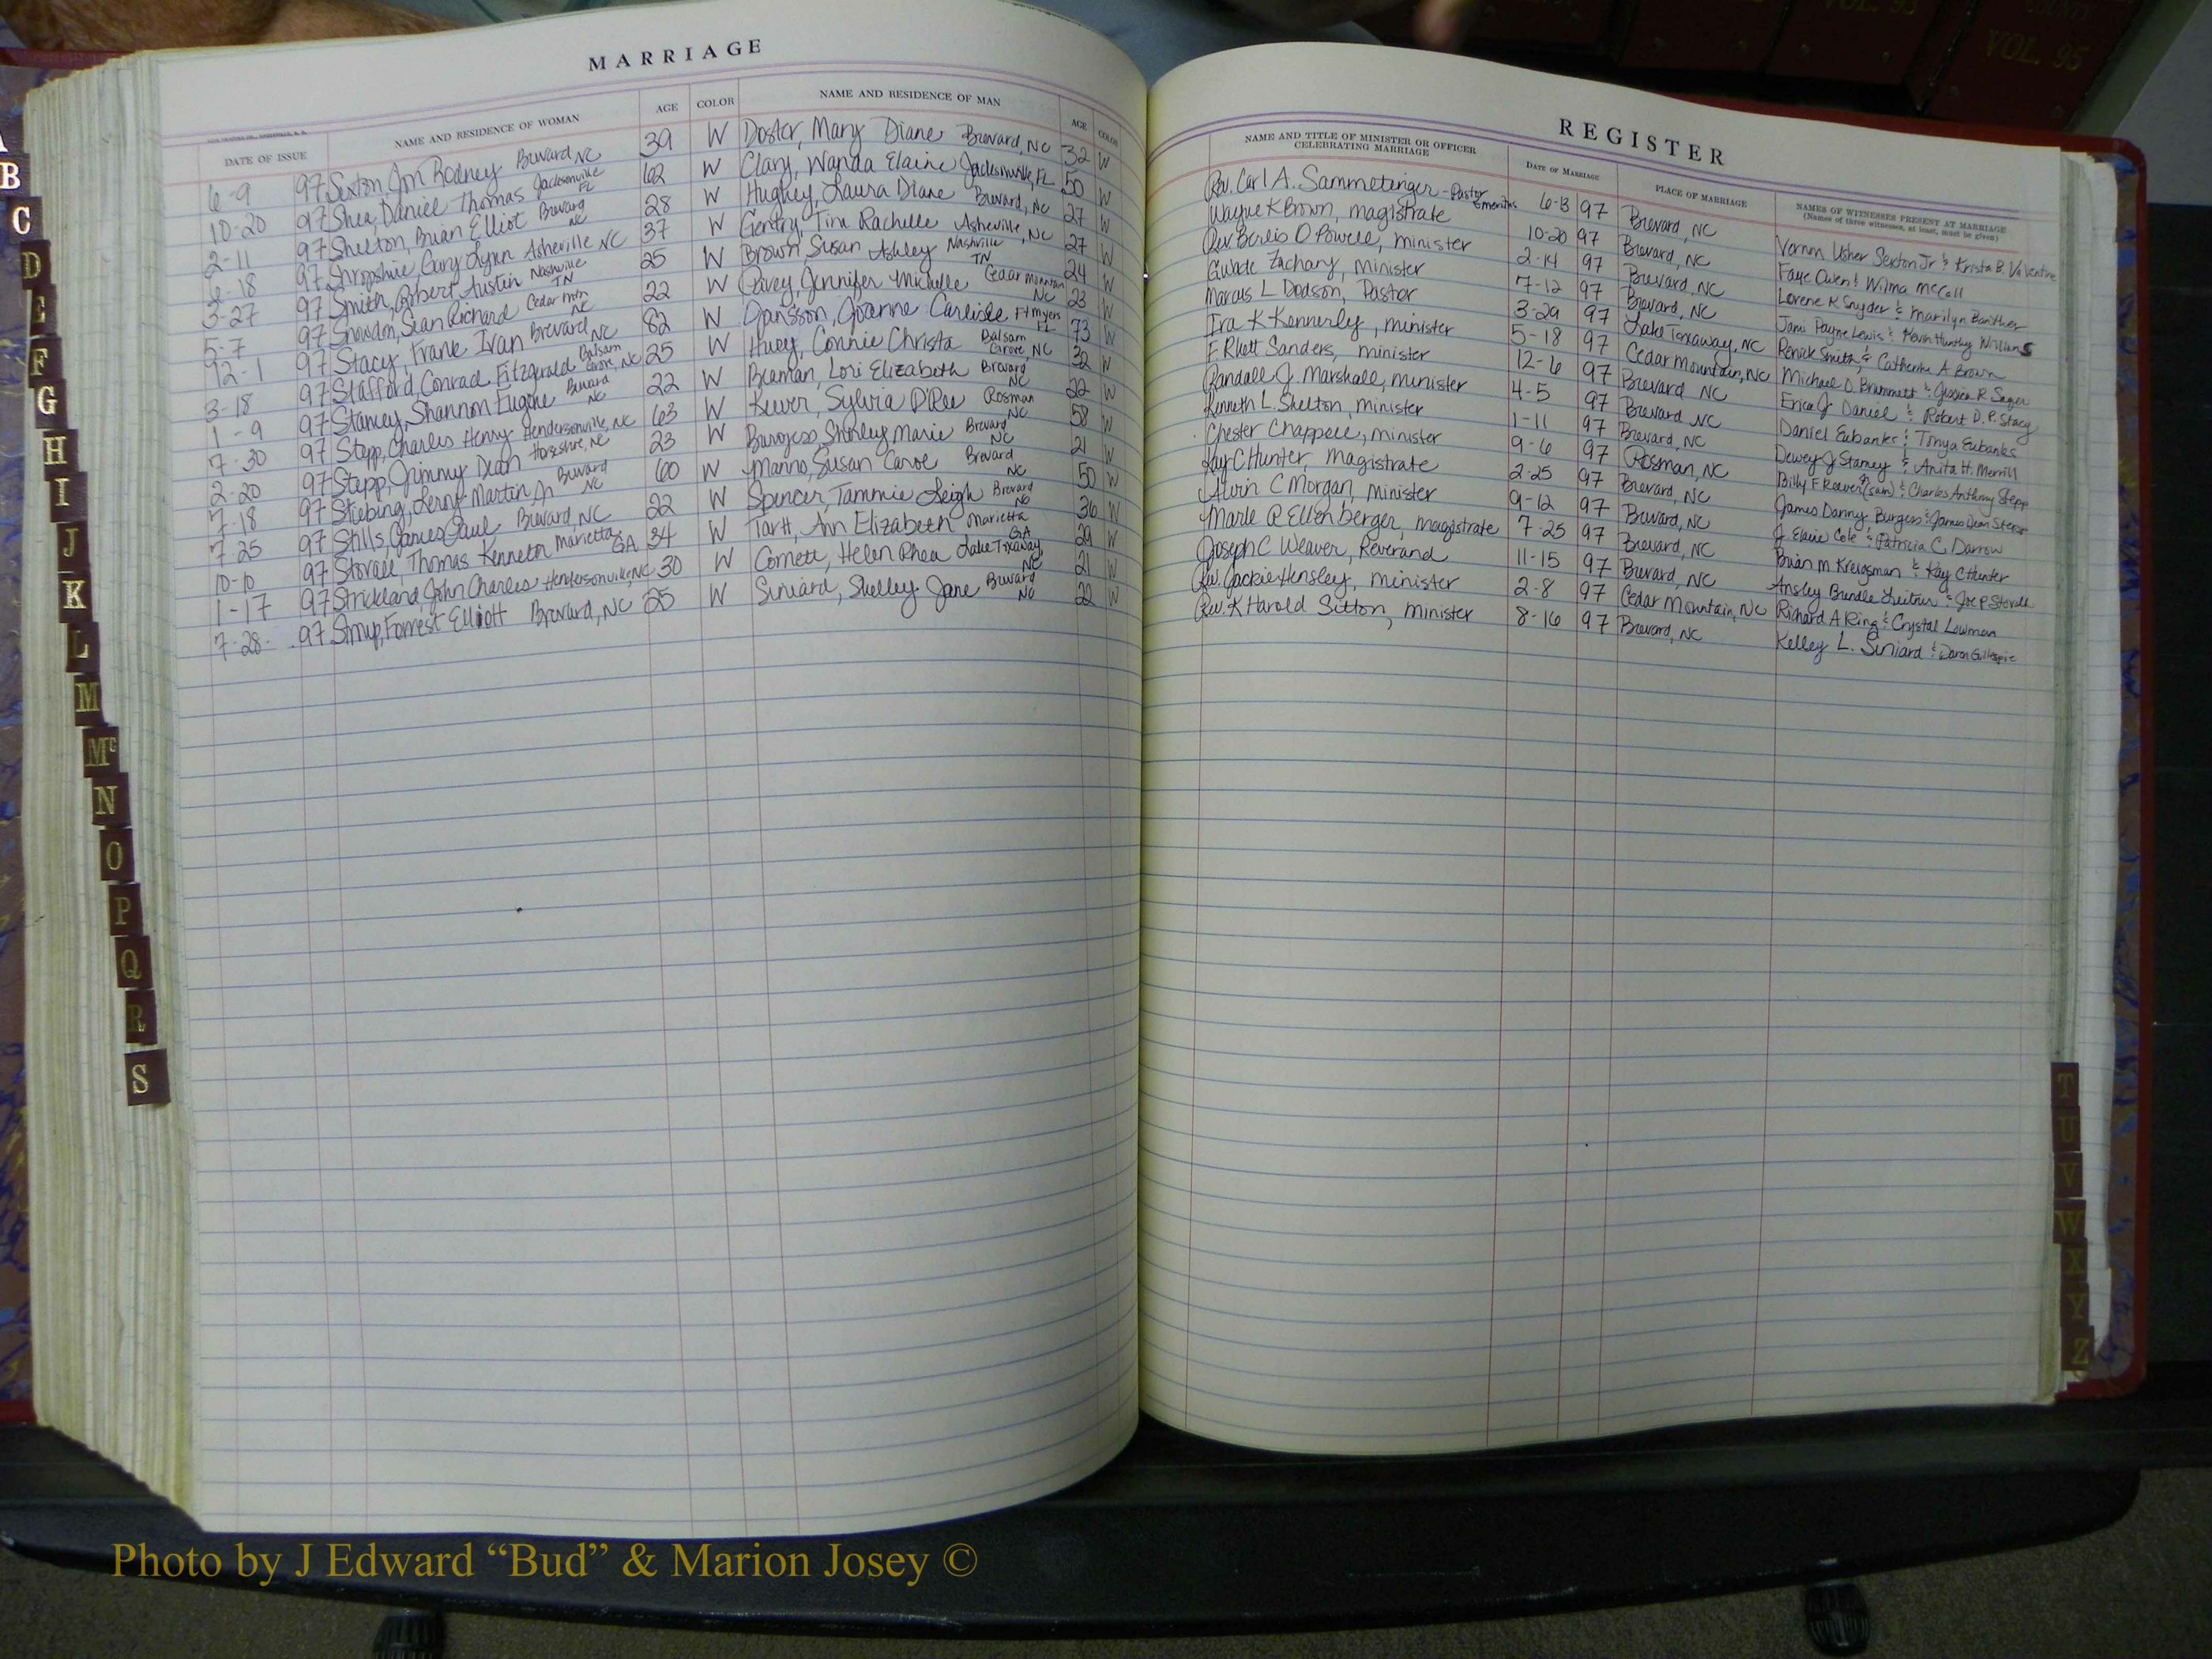 MARRIAGE
DATE OF ISSUE NAME AND RESIDENCE OF WOMAN AGE COLOR NAME AND RESIDENCE OF MAN AGE COLOR
6-9 97 Sexton, Jon Rodney Brevard, NC 39 W Doster, Mary Diane Brevard, NC 32 W
10-20 97 Shea, Daniel Thomas Jacksonville FL 62 W Clary, Wanda Elaine Jacksonville, FL 50 W
2-11 97 Shelton, Brian Elliot Brevard NC 28 W Hughey, Laura Diane Brevard, NC 27 W
6-18 97 Shropshire, Gary Lynn Asheville NC 37 W Gentry, Tina Rachelle Asheville, NC 27 W
3-27 97 Smith, Robert Austin Nashville TN 25 W Brown, Susan Ashley Nashville TN 24 W
5-7 97 Snowdon, Sean Richard Cedar Mtn NC 22 W Pavey, Jennifer Michelle Cedar Mountain NC 23 W
12-1 97 Stacy, Frank Ivan Brevard NC 82 W Jansson, Joanne Carlisle Ft Myers FL 73 W
3-18 97 Stafford, Conrad Fitzgerald Balsam Grove, NC 25 W Huey, Connie Christa Balsam Grove, NC 32 W
1-9 97 Stamey, Shannon Eugene Brevard NC 22 W Beaman, Lori Elizabeth Brevard NC 22 W
7-30 97 Stepp, Charles Henry Hendersonville, NC 63 W Reever, Sylvia D'Ree Rosman NC 58 W
2-20 97 Stepp, Jimmy Dean Horseshoe, NC 23 W Burgess, Shirley Marie Brevard NC 21 W
7-18 97 Stiebing, Leroy Martin Jr Brevard NC 60 W Manno, Susan Carol Brevard NC 50 W
7-25 97 Stills, James Paul Brevard, NC 22 W Spencer, Tammie Leigh Brevard NC 36 W
10-10 97 Stovall, Thomas Kenneth Marietta GA 34 W Tartt, Ann Elizabeth Marietta GA 29 W
1-17 97 Strickland, John Charles Hendersonville, NC 30 W Cornett, Helen Rhea Lake Toxaway NC 21 W
7-28 97 Forrest Elliott Brevard, NC 25 W Siniard, Shelley Jane Brevard NC 22 W
REGISTER
NAME AND TITLE OF MINISTER OR OFFICER CELEBRATING MARRIAGE DATE OF MARRIAGE PLACE OF MARRIAGE NAMES OF WITNESSES PRESENT AT MARRIAGE
(Names of three witnesses, at least, must be given)
Rev. Carl A. Sammetinger - Pastor Emeritus 6-13 97 Brevard, NC Vernon Usher Sexton Jr & Krista B. Valentine
Wayne K Brown, magistrate 10-20 97 Brevard, NC Faye Owen & Wilma McCall
Rev Berlis O Powell, minister 2-14 97 Brevard, NC Lorene K Snyder & Marilyn Banther
Gwade Zachary, Minister 7-12 97 Brevard, NC Jami Payne Lewis & Kevin Huntly Williams
Marcus L Dodson, Pastor 3-29 97 Lake Toxaway, NC Renick Smith & Catherine A Brown
Ira K Kennerly, minister 5-18 97 Cedar Mountain, NC Michael D. Brummett & Jessica R Sager
F Rhett Sanders, minister 12-6 97 Brevard NC Erica J Daniel & Robert D. P. Stacy
Randall J. Marshall, minister 4-5 97 Brevard NC Daniel Eubanks & Tonya Eubanks
Kenneth L. Shelton, minister 1-11 97 Brevard, NC Dewey J Stamey & Anita H. Merrill
Chester Chappell, minister 9-6 97 Rosman, NC Billy F Reever & Charles Anthony Stepp
Kay C Hunter, Magistrate 2-25 97 Brevard, NC James Danny Burgess & James Dean
Alvin C Morgan, Minister 9-12 97 Brevard, NC J. Elaine Cole & Patricia C. Darrow
Marle P Ellenberger, magistrate 7-25 97 Brevard, NC Brian M. Kreigsman & Kay C Hunter
Joseph C Weaver, Reverand 11-15 97 Brevard, NC Ansley Brindle Leitner & Joe P Stovall
Rev. Jackie Hensley, Minister 2-8 97 Cedar Mountain, NC Richard A Ring & Crystal Lowman
Rev. K Harold Sitton, minister 8-16 97 Brevard, NC Kelley L. Siniard & Daron Gillespie
B
C
D
E
F
G
H
I
J
K
L
M
Mc
N
O
P
Q
R
S
T
U
V
W
X
Y
Z
VOL. 93
COUNTY
VOL. 95
Photo by J Edward “Bud” & Marion Josey ©